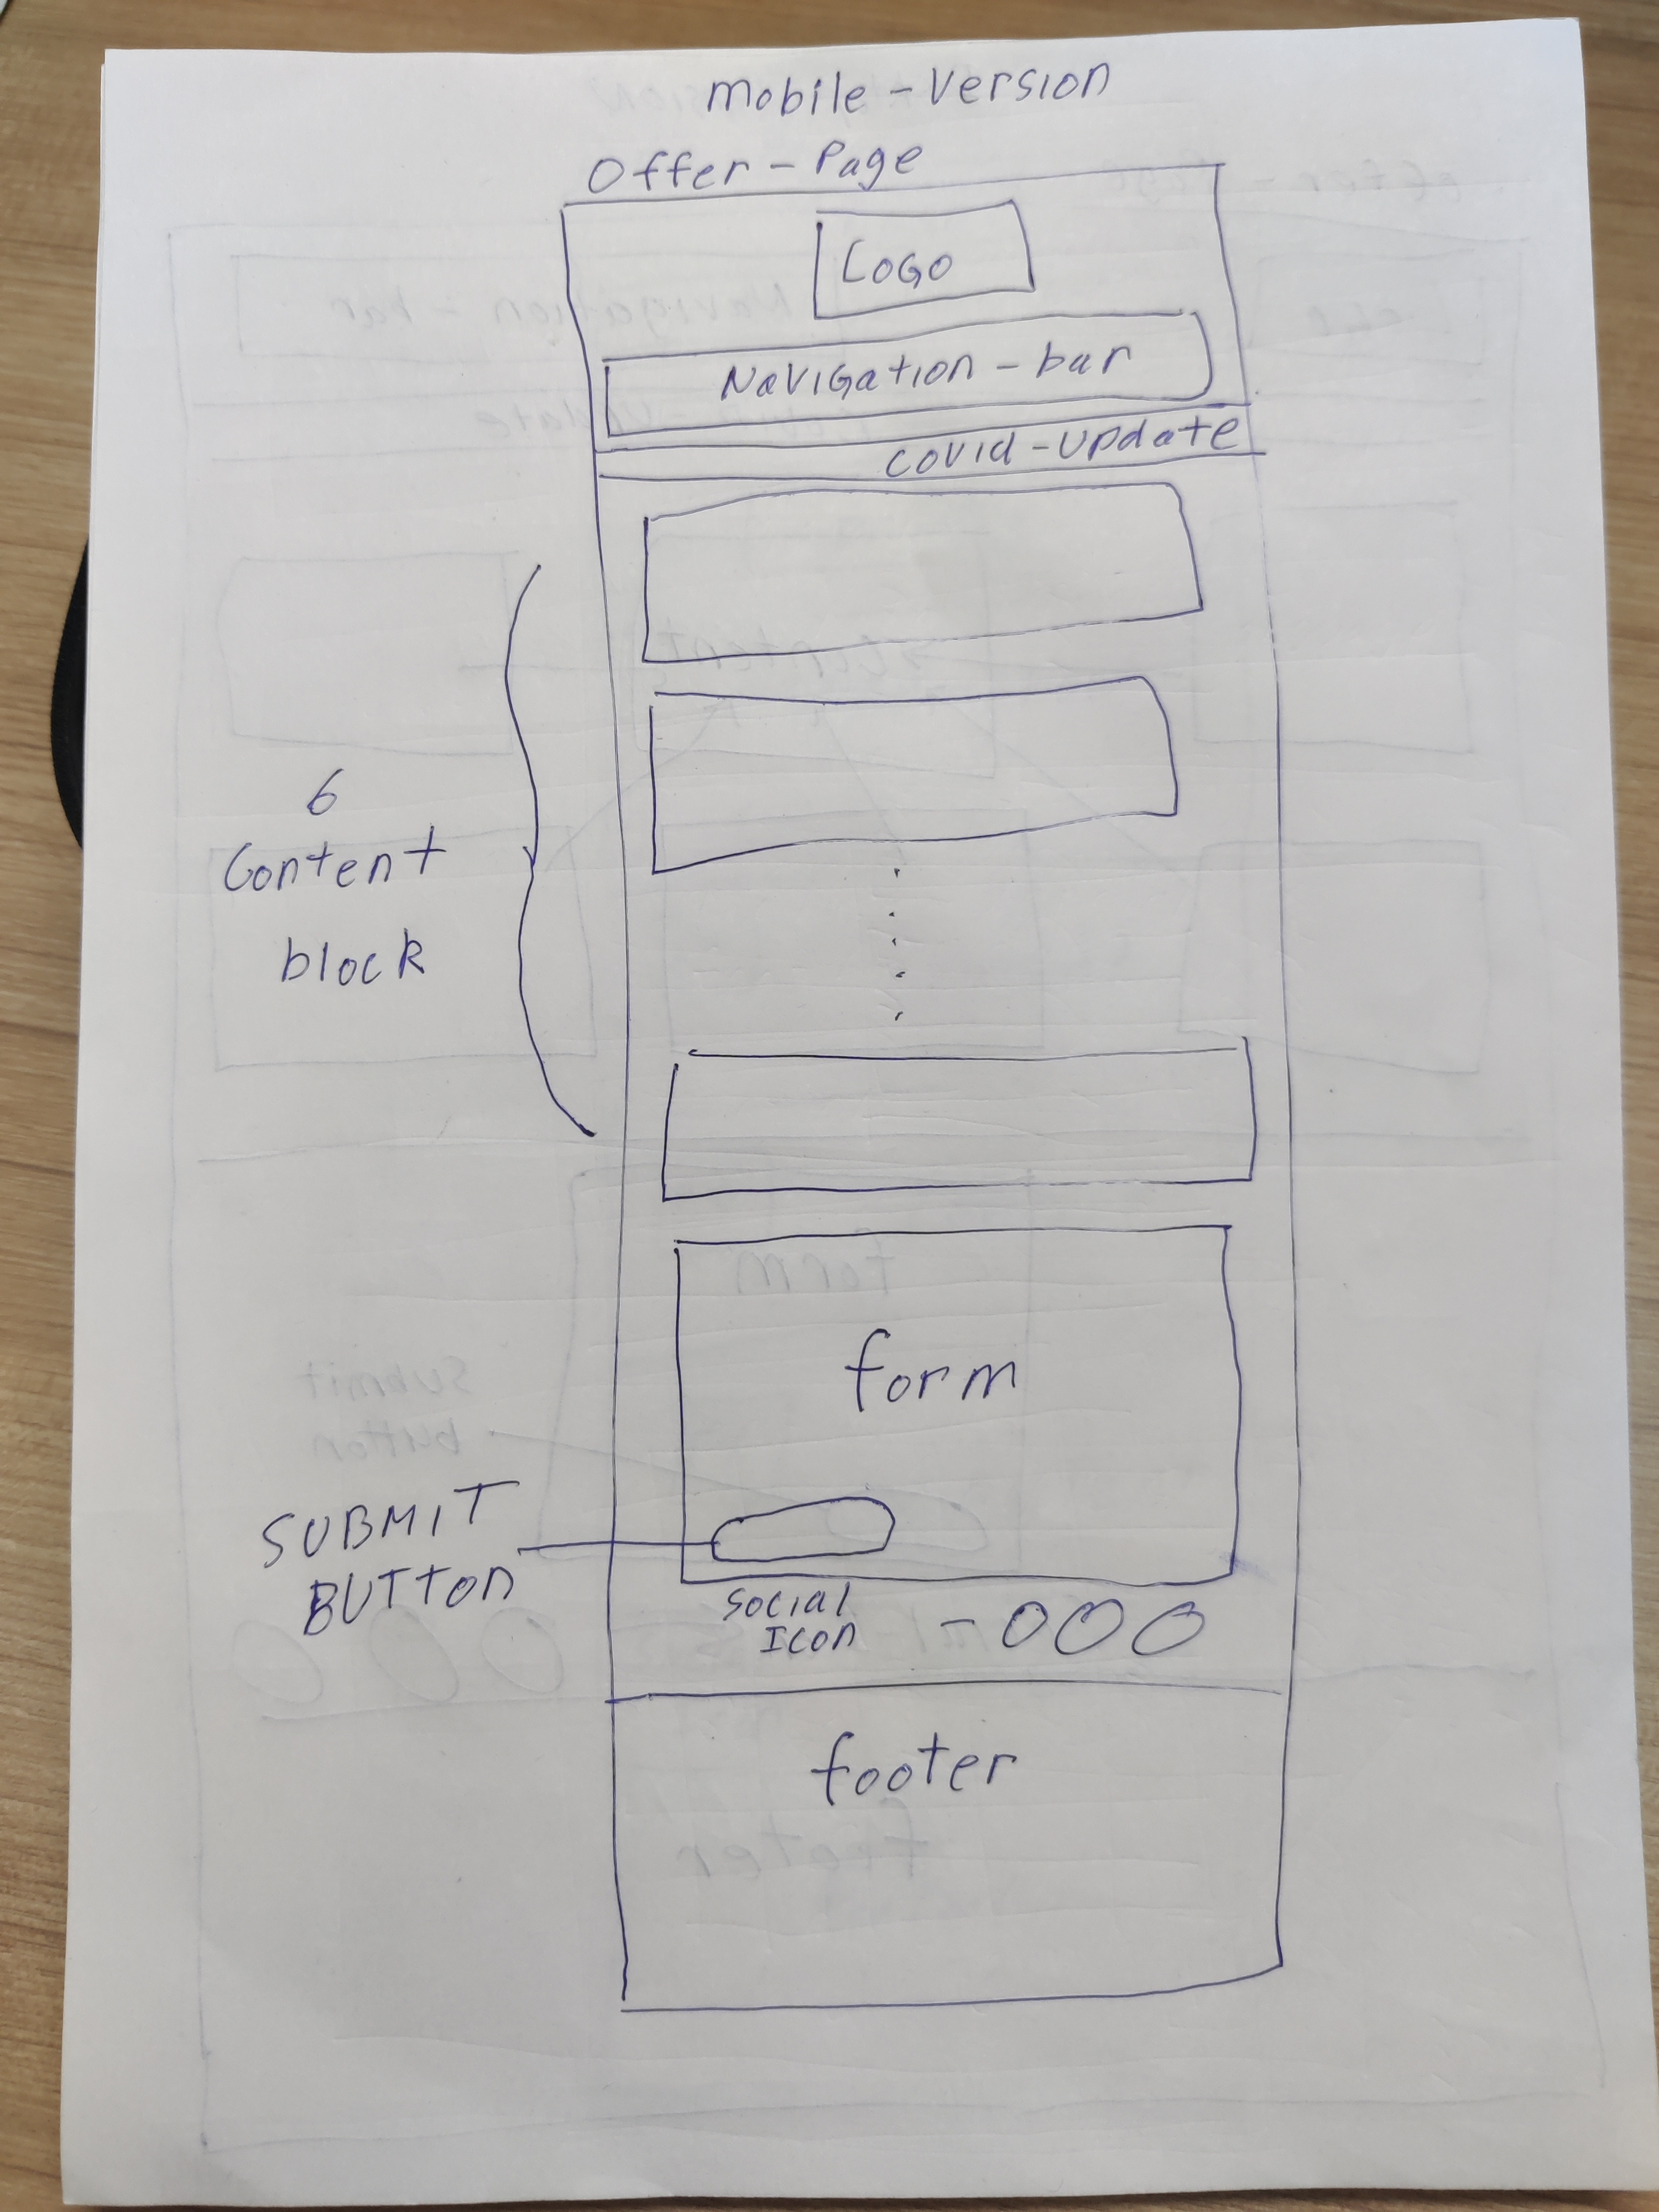 Mobile - Version
Offer - Page
LOGO
Navigation - bar
covid - update
6
Content
block
form
SUBMIT
BUTTON
Social
Icon
footer